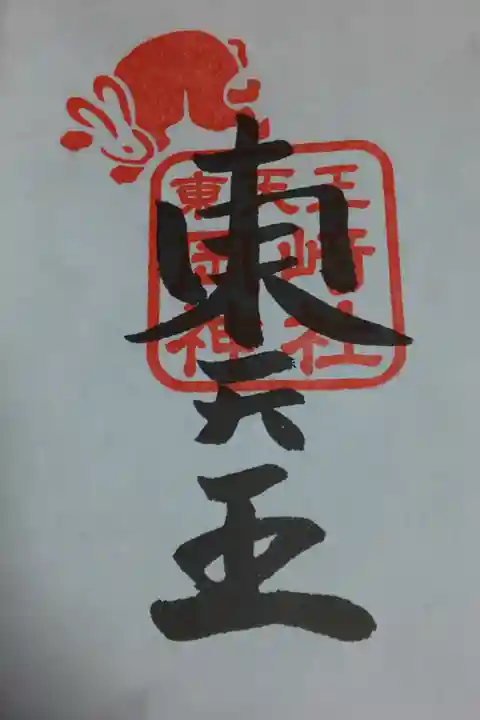 東天王
東天王
岡崎
神社